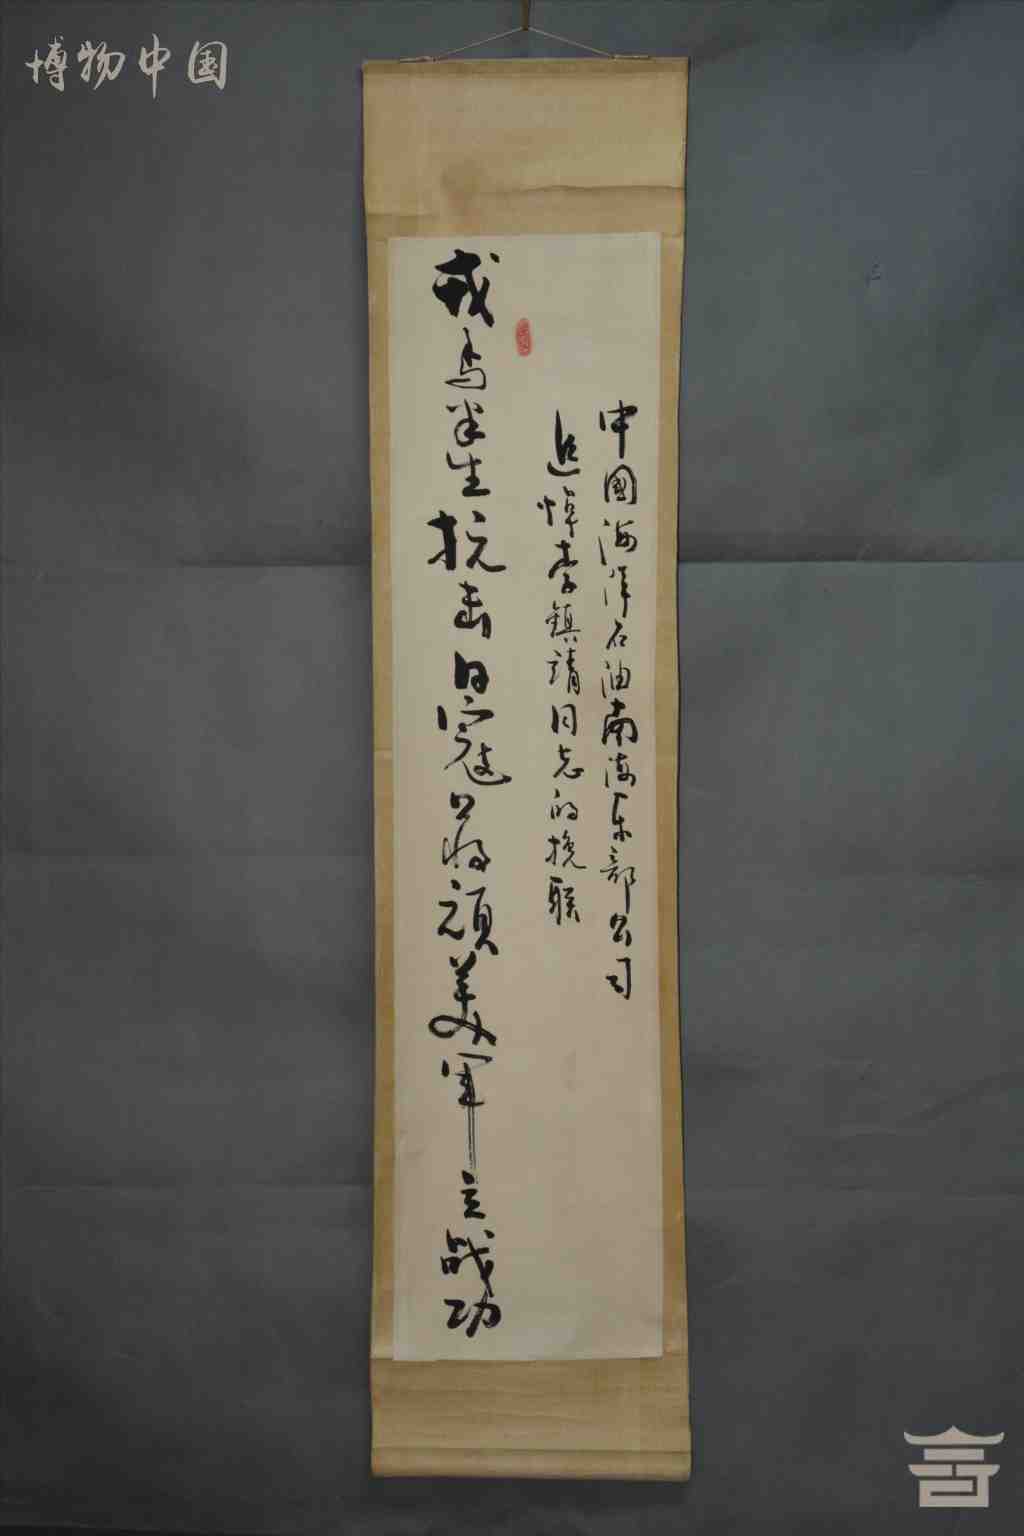 博物中国
中國海洋石油南海东部公司
追悼李鎮靖同志的挽联
戎马半生抗击日寇蒋顽美军立战功